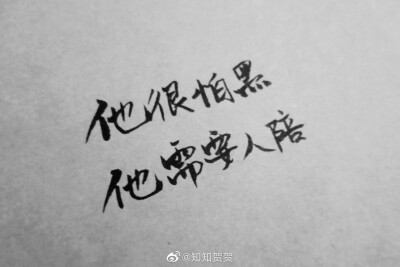 他很怕黑
他需要人陪
@知知贺贺